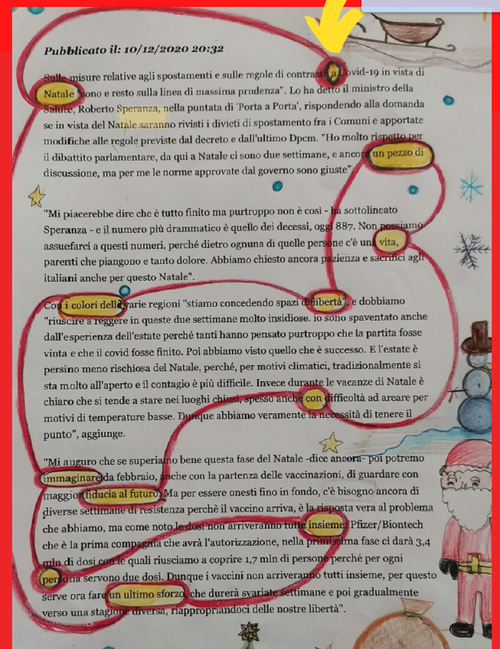 Pubblicato il: 10/12/2020 20:32
Sulle misure relative agli spostamenti e sulle regole di contrasto a Covid-19 in vista di
Natale "sono e resto sulla linea di massima prudenza". Lo ha detto il ministro della
Salute, Roberto Speranza, nella puntata di 'Porta a Porta', rispondendo alla domanda
se in vista del Natale saranno rivisti i divieti di spostamento fra i Comuni e apportate
modifiche alle regole previste dal decreto e dall'ultimo Dpcm. "Ho molto rispetto per
il dibattito parlamentare, da qui a Natale ci sono due settimane, e ancora un pezzo di
discussione, ma per me le norme approvate dal governo sono giuste".
"Mi piacerebbe dire che è tutto finito ma purtroppo non è così - ha sottolineato
Speranza - e il numero più drammatico è quello dei decessi, oggi 887. Non possiamo
assuefarci a questi numeri, perché dietro ognuna di quelle persone c'è una vita,
parenti che piangono e tanto dolore. Abbiamo chiesto ancora pazienza e sacrifici agli
italiani anche per questo Natale".
Con i colori delle varie regioni "stiamo concedendo spazi di libertà", e dobbiamo
"riuscire a reggere in queste due settimane molto insidiose. Io sono spaventato anche
dall'esperienza dell'estate perché tanti hanno pensato purtroppo che la partita fosse
vinta e che il covid fosse finito. Poi abbiamo visto quello che è successo. E l'estate è
persino meno rischiosa del Natale, perché, per motivi climatici, tradizionalmente si
sta molto all'aperto e il contagio è più difficile. Invece durante le vacanze di Natale è
chiaro che si tende a stare nei luoghi chiusi, spesso anche con difficoltà ad areare per
motivi di temperature basse. Dunque abbiamo veramente la necessità di tenere il
punto", aggiunge.
"Mi auguro che se superiamo bene questa fase del Natale -dice ancora- poi potremo
immaginare da febbraio, anche con la partenza delle vaccinazioni, di guardare con
maggior fiducia al futuro. Ma per essere onesti fino in fondo, c'è bisogno ancora di
diverse settimane di resistenza perchè il vaccino arriva, è la risposta vera al problema
che abbiamo, ma come noto le dosi non arriveranno tutte insieme: Pfizer/Biontech
che è la prima compagnia che avrà l'autorizzazione, nella primissima fase ci darà 3,4
mln di dosi con le quali riusciamo a coprire 1,7 mln di persone perché per ogni
persona servono due dosi. Dunque i vaccini non arriveranno tutti insieme, per questo
serve ora fare un ultimo sforzo, che durerà svariate settimane e poi gradualmente
verso una stagione diversa, riappropriandoci delle nostre libertà".